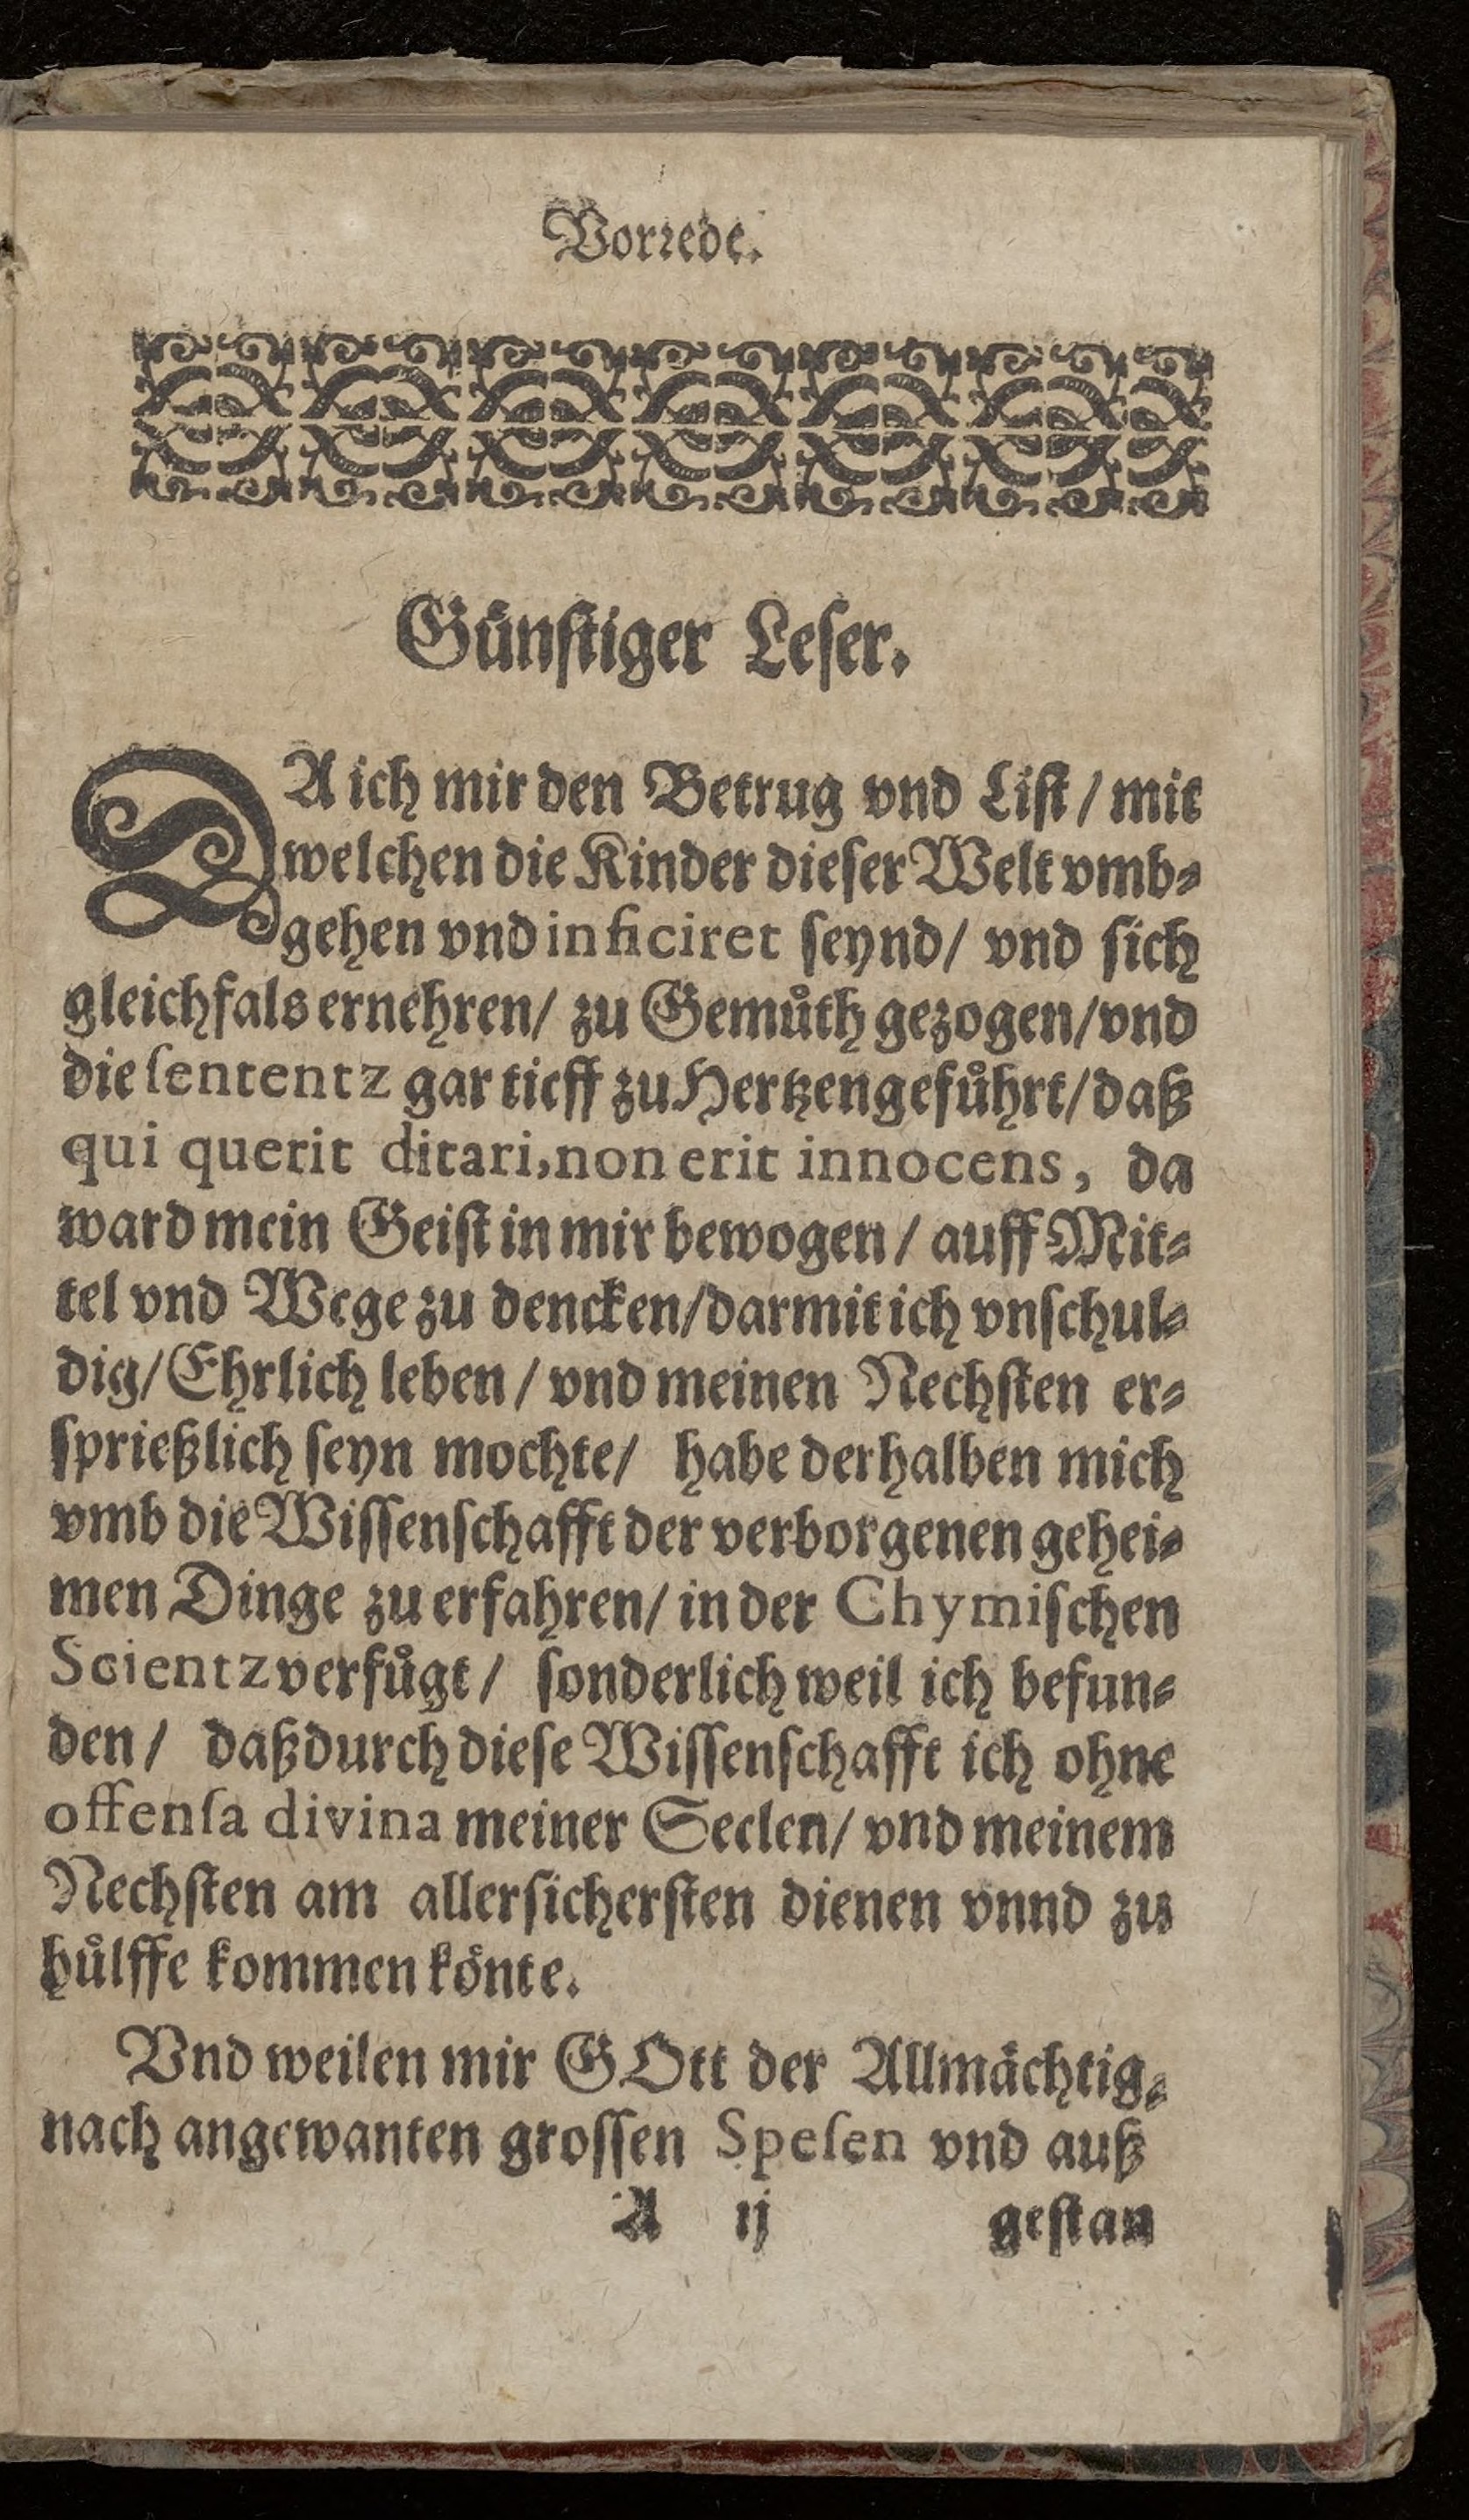 Vorrede.
Günſtiger Leſer.
DA ich mir den Betrug vnd Liſt / mit
welchen die Kinder dieſer Welt vmb⸗
gehen vnd inficiret ſeynd/ vnd ſich
gleichfals ernehren/ zu Gemuͤth gezogen/vnd
die ſententz gar tieff zu Hertzen gefuͤhrt/daß
qui querit ditari, non erit innocens, da
ward mein Geiſt in mir bewogen / auff Mit⸗
tel vnd Wege zu dencken/darmit ich vnſchul⸗
dig/Ehrlich leben / vnd meinen Nechſten er⸗
ſprießlich ſeyn mochte/ habe derhalben mich
vmb die Wiſſenſchafft der verborgenen gehei⸗
men Dinge zu erfahren/ in der Chymiſchen
Scientz verfuͤgt / ſonderlich weil ich befun⸗
den / daß durch dieſe Wiſſenſchafft ich ohne
offenſa divina meiner Seelen/ vnd meinem
Nechſten am allerſicherſten dienen vnnd zu
huͤlffe kommen koͤnte.
Vnd weilen mir GOtt der Allmaͤchtig⸗
nach angewanten groſſen Speſen vnd auß
A ij geſtan